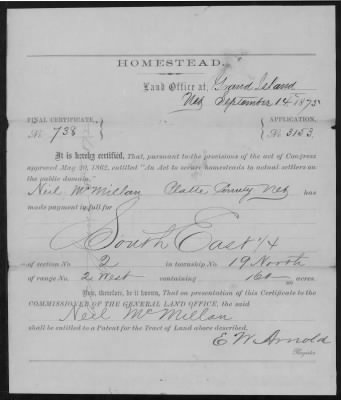 HOMESTEAD.
Land Office at, Grand Island
Neb September 14th 1875
FINAL CERTIFICATE, APPLICATION,
No. 738 No. 3153
It is hereby certified, That, pursuant to the provisions of the act of Congress
approved May 20, 1862, entitled "An Act to secure homesteads to actual settlers on
the public domain,"
Neil McMillan Platte County Neb has
made payment in full for
South East 1/4
of section No. 2 in township No. 19 North
of range No. 2 West containing 160 acres.
Now, therefore, be it known, That on presentation of this Certificate to the
COMMISSIONER OF THE GENERAL LAND OFFICE, the said
Neil McMillan
shall be entitled to a Patent for the Tract of Land above described.
E. W. Arnold
Register.